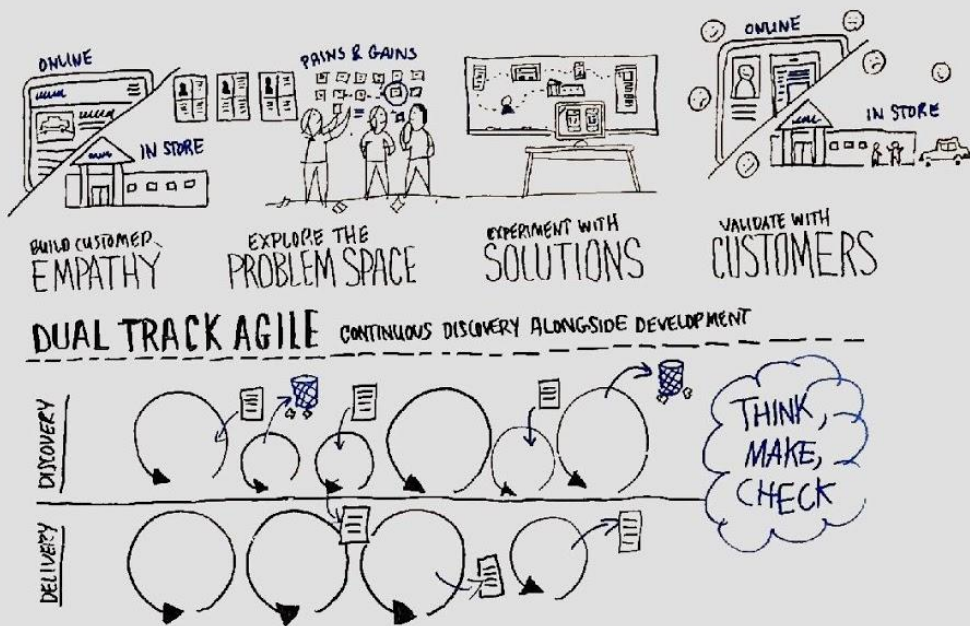 ONLINE
IN STORE
PAINS & GAINS
ONLINE
IN STORE
BUILD CUSTOMER
EMPATHY
EXPLORE THE
PROBLEM SPACE
EXPERIMENT WITH
SOLUTIONS
VALIDATE WITH
CUSTOMERS
DUAL TRACK AGILE CONTINUOUS DISCOVERY ALONGSIDE DEVELOPMENT
DISCOVERY
THINK,
MAKE,
CHECK
DELIVERY